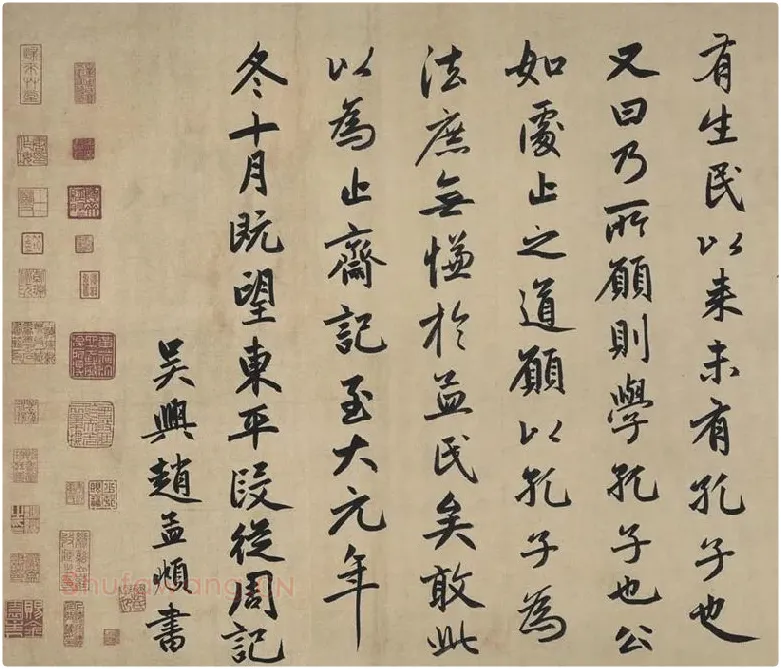 有生民以来未有孔子也
又曰乃所願則學孔子也公
如處止之道願以孔子為
法庶無慊於益民矣敢此
以為止齋記至大元年
冬十月既望東平段從周記
吳興趙孟頫書
Shufawang.CN